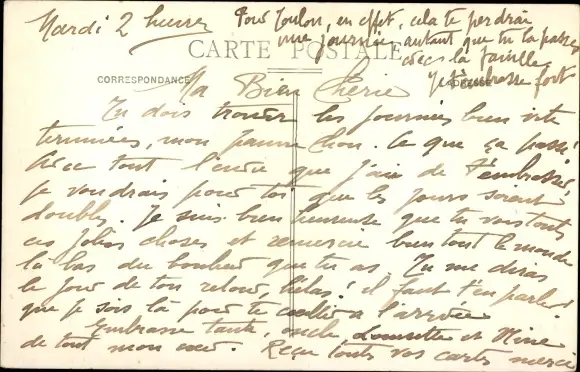 Mardi 2 heures
Pour Toulon, en effet, cela te perdrai
une journée, autant que tu la passes
avec la famille
Je t'embrasse fort
CARTE POSTALE
CORRESPONDANCE
ADRESSE
Ma Bien Chérie
Tu dois trouver les journées bien vite
terminées, mon pauvre Chou. Ce que ça passe!
Avec tout l'envie que j'ai de t'embrasser,
je voudrais pour toi que les jours soient
doubles. Je suis bien heureuse que tu vois toutes
ces jolies choses et remercie bien tout le monde
là bas du bonheur que tu as. Tu me diras
le jour de ton retour, hélas! il faut t'en parler!
que je sois là pour te à l'arrivée
Embrasse tante, oncle et
de tout mon cœur. Reçu toutes vos cartes merci